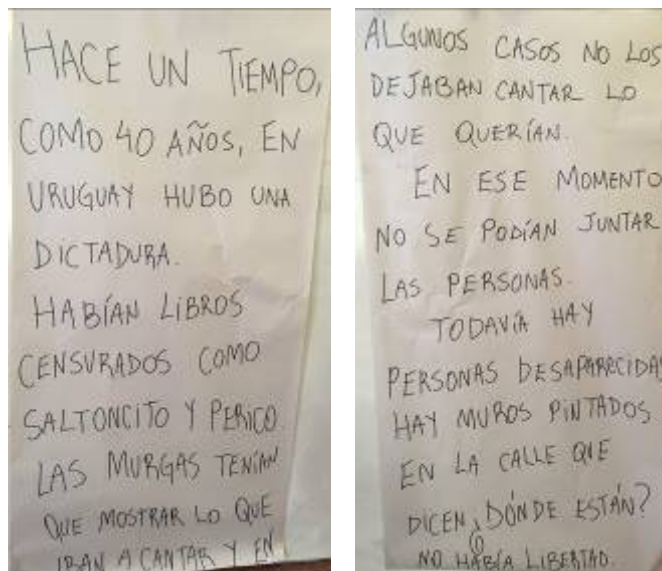 HACE UN TIEMPO,
COMO 40 AÑOS, EN
URUGUAY HUBO UNA
DICTADURA.
HABÍAN LIBROS
CENSURADOS COMO
SALTONCITO Y PERICO.
LAS MURGAS TENÍAN
QUE MOSTRAR LO QUE
IBAN A CANTAR Y EN
ALGUNOS CASOS NO LOS
DEJABAN CANTAR LO
QUE QUERÍAN.
EN ESE MOMENTO
NO SE PODÍAN JUNTAR
LAS PERSONAS.
TODAVÍA HAY
PERSONAS DESAPARECIDAS
HAY MUROS PINTADOS
EN LA CALLE QUE
DICEN ¿DÓNDE ESTÁN?
NO HABÍA LIBERTAD.